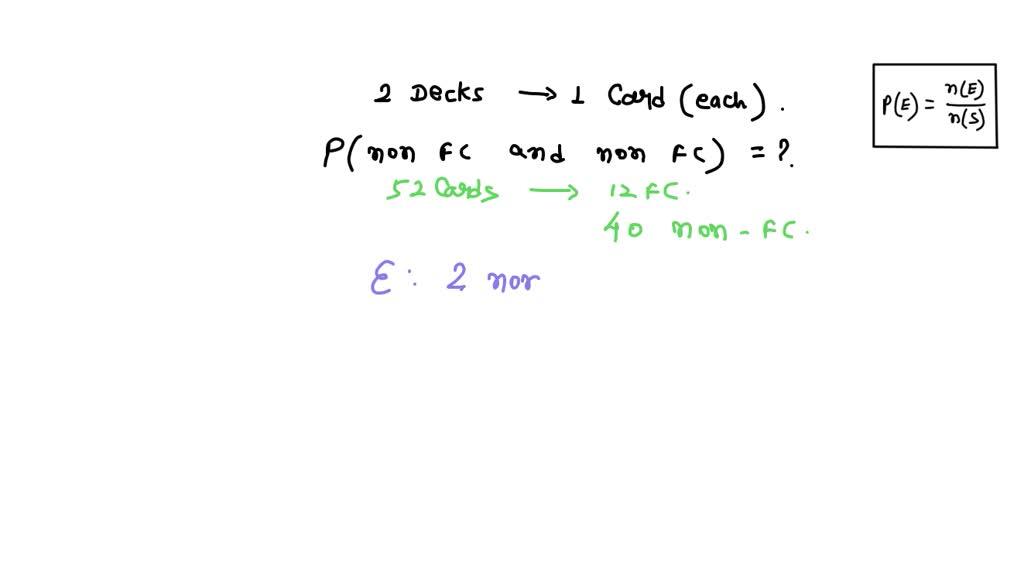 2 Decks → 1 Card (each).
P(E) = n(E)/n(S)
P(non FC and non FC) = ?.
52 Cards → 12 FC.
40 non-FC.
E: 2 nor